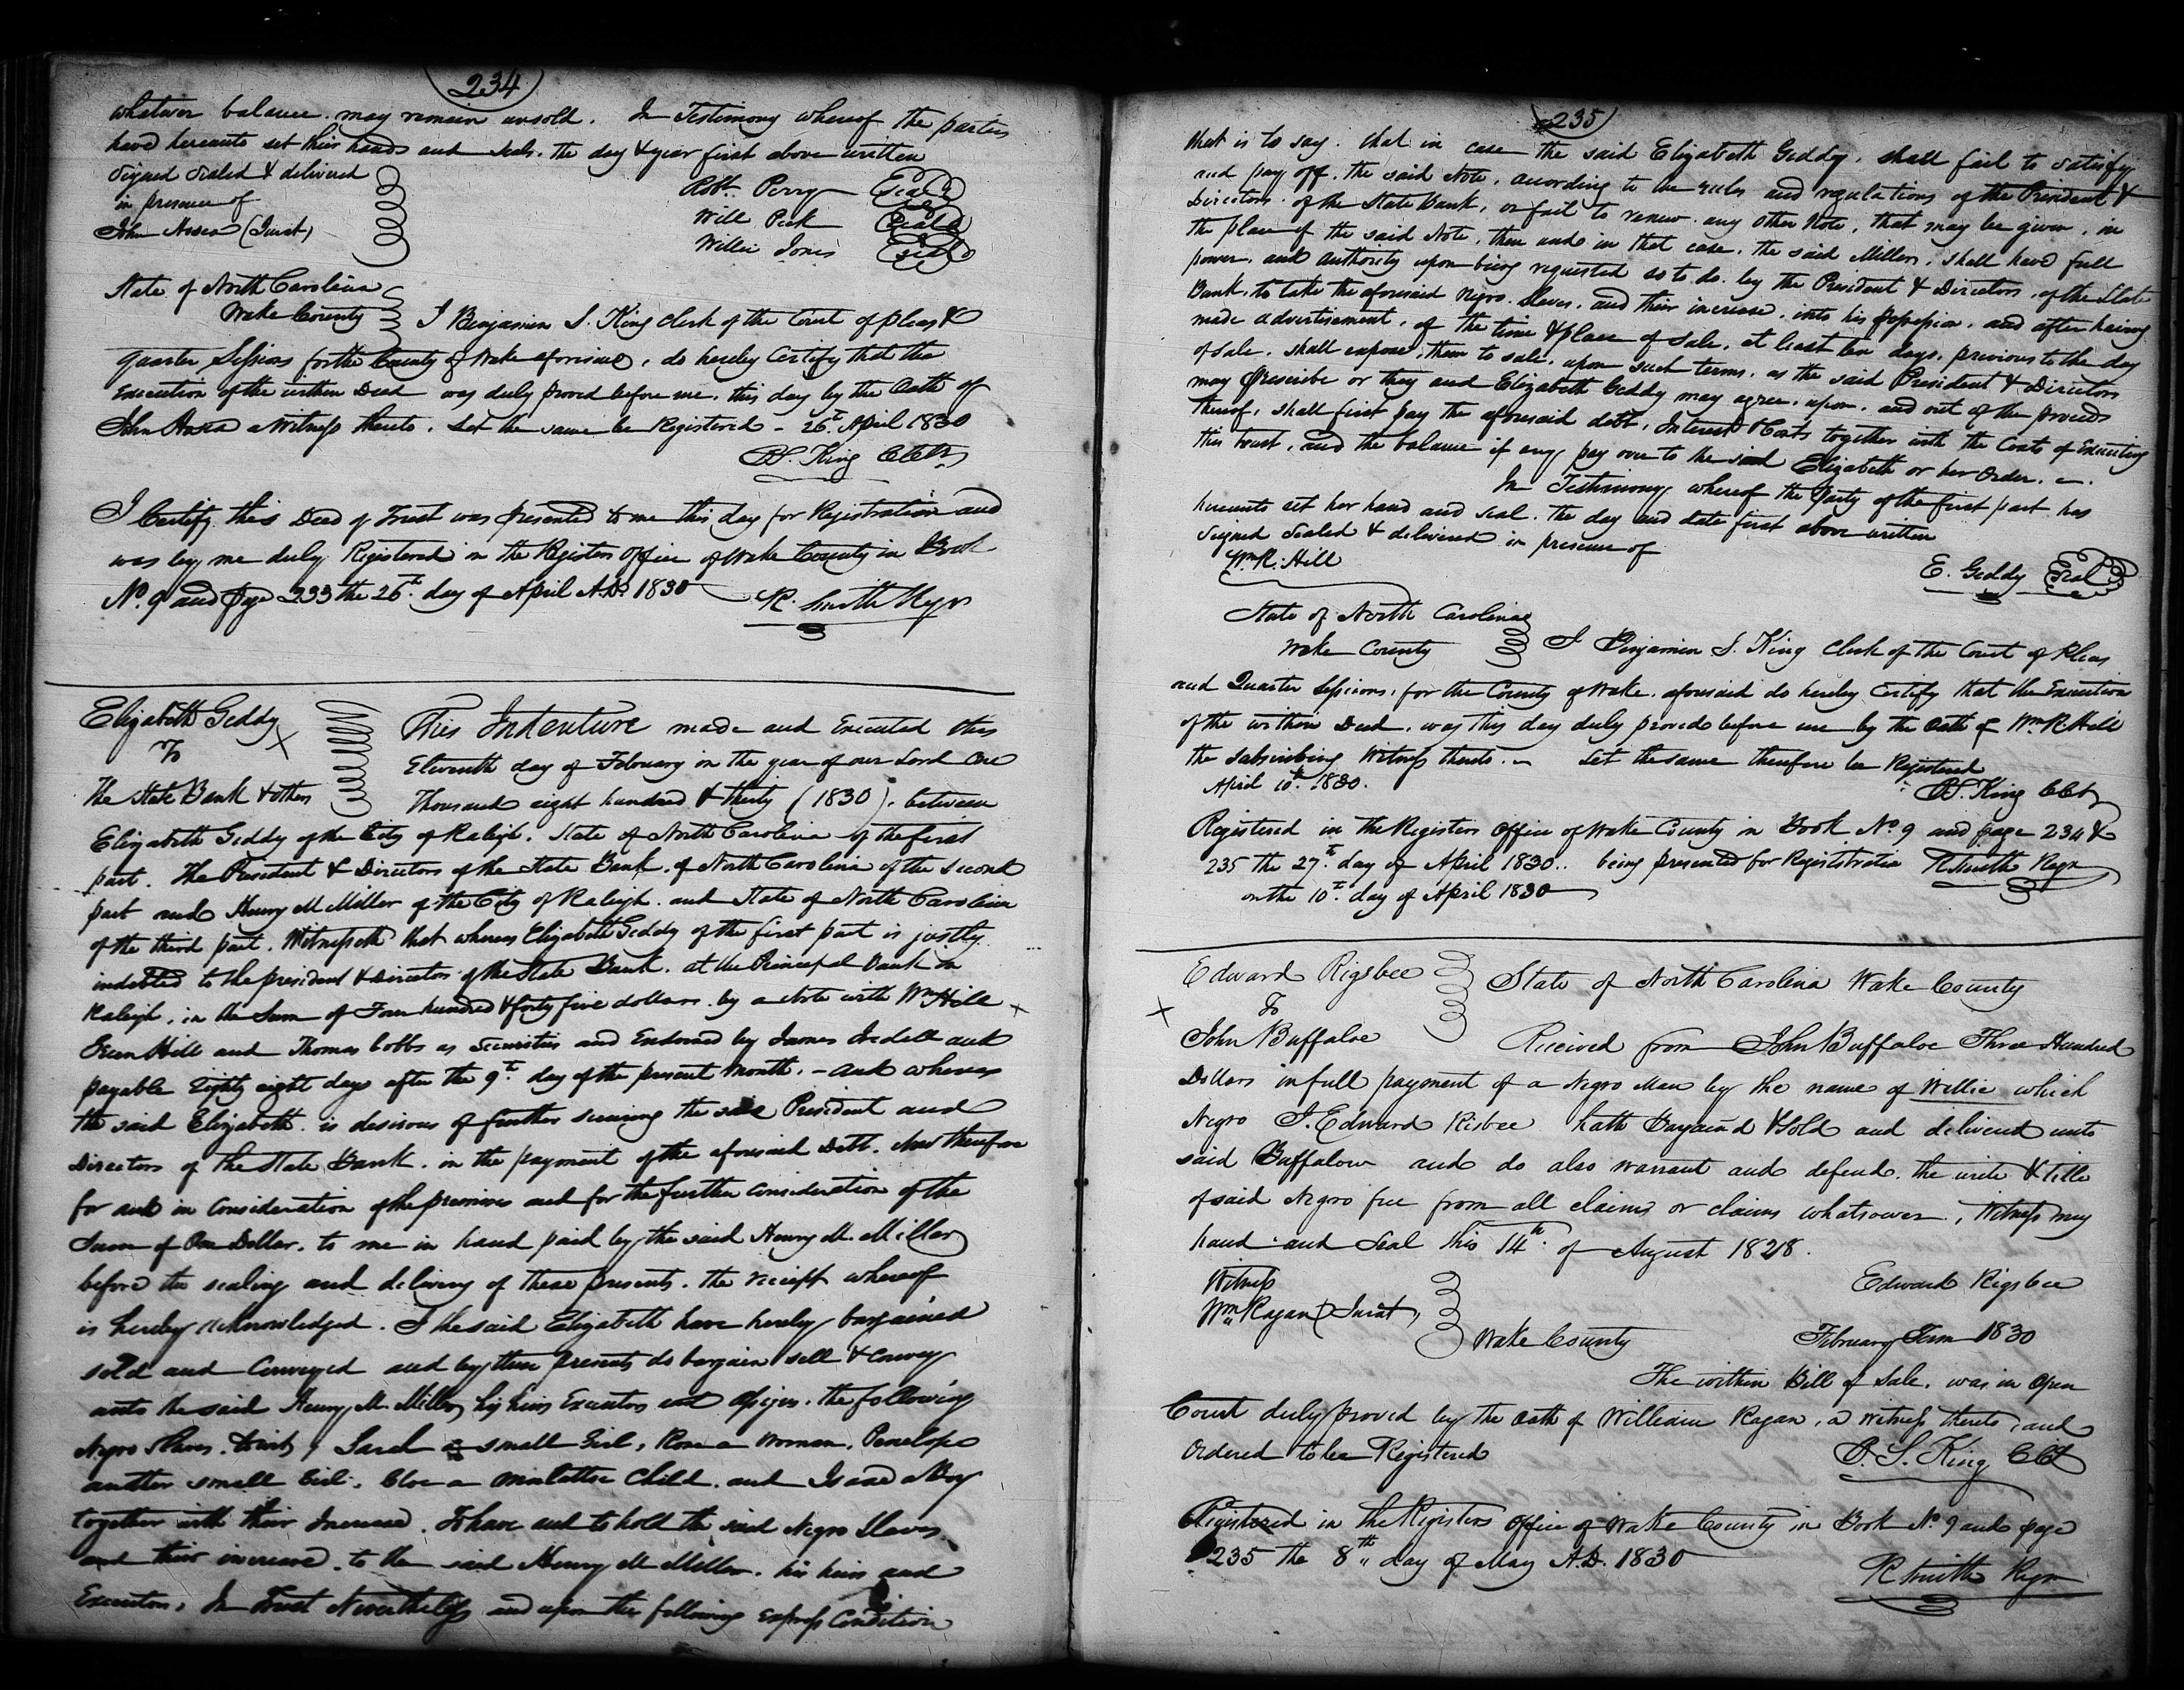 234
whatever balance may remain unsold. In Testimony whereof the parties
have hereunto set their hands and seals. the day & year first above written
Signed Sealed & delivered
in presence of
John (Jurat)
Robt. Perry Seal
Will Peck Seal
Willie Jones Seal
State of North Carolina
Wake County I Benjamin S. King Clerk of the Court of pleas &
quarter Sessions for the County of Wake aforesaid, do hereby Certify that the
Execution of the within Deed was duly proved before me, this day by the Oath of
John a Witness thereto. Let the same be Registered - 26th April 1830
B.S. King CCk
I Certify this Deed of Trust was presented to me this day for Registration and
was by me duly Registered in the Registers office of Wake County in Book
No. 9 and page 233 the 26th day of April A.D. 1830 R. Smith Regr
Elizabeth Geddy
To
The State Bank & others
This Indenture made and Executed this
Eleventh day of February in the year of our Lord One
Thousand eight hundred & thirty (1830). between
Elizabeth Geddy of the City of Raleigh. State of North Carolina of the first
part. The President & Directors of the State Bank. of North Carolina of the second
part and Henry M Miller of the City of Raleigh. and State of North Carolina
of the third part. Witnesseth that whereas Elizabeth Geddy of the first part is justly
indebted to the president & Directors of the State Bank. at the Principal Bank in
Raleigh, in the Sum of Four hundred & forty five dollars by a Note with Wm Hill
Hill and Thomas Cobbs as Securities and Endorsed by James Iredell and
payable Eighty eight days after the 9th day of the present Month. - and whereas
the said Elizabeth is desirous of further securing the said President and
Directors of the State Bank. in the payment of the aforesaid Debt. Now therefore
for and in Consideration of the premises and for the further Consideration of the
Sum of One Dollar. to me in hand paid by the said Henry M. Miller
before the sealing and delivery of these presents. the receipt whereof
is hereby acknowledged. I the said Elizabeth have hereby bargained
sold and Conveyed and by these presents do bargain sell & convey
unto the said Henry M. Miller his heirs Executors and Assigns. the following
Negro Slaves. towit, Sarah a small Girl, Rose a Woman, Penelope
another small Girl. Cloe a Mulattoe Child. and Isaac a Boy
together with their Increase. To have and to hold the said Negro Slaves
and their increase. to the said Henry M Miller. his heirs and
Executors, In Trust Nevertheless and upon the following Express Condition
235
that is to say. that in case the said Elizabeth Geddy. shall fail to satisfy
and pay off. the said Note, according to the rules and regulations of the President &
Directors of the State Bank, or fail to renew any other Note, that may be given, in
the place of the said Note, then and in that case, the said Miller. shall have full
power. and authority upon being requested so to do. by the President & Directors, of the State
Bank, to take the aforesaid Negro Slaves, and their increase, into his possession, and after having
made advertisement, of the time & place of Sale, at least ten days, previous to the day
of sale. shall expose, them to sale, upon such terms, as the said President & Directors
may prescribe or they and Elizabeth Geddy may agree, upon. and out of the proceeds
thereof, shall first pay the aforesaid debt, Interest & Costs together with the Costs of Executing
this trust, and the balance if any pay over to the said Elizabeth or her Order.
In Testimony whereof the Party of the first part has
hereunto set her hand and seal. the day and date first above written
Signed Sealed & delivered in presence of
Wm R. Hill
E. Geddy Seal
State of North Carolina
Wake County I Benjamin S. King Clerk of the Court of Pleas
and Quarter Sessions, for the County of Wake. aforesaid do hereby Certify that the Execution
of the within Deed. was this day duly proved before me by the Oath of Wm R. Hill
the Subscribing Witness thereto. Let the same therefore be Registered
April 10th 1830.
B.S. King CCk
Registered in the Registers Office of Wake County in Book No 9 and page 234 &
235 the 27th day of April 1830.. being presented for Registration R. Smith Regr
on the 10th day of April 1830
Edward Rigsbee
To
John Buffaloe
State of North Carolina Wake County
Received from John Buffaloe Three Hundred
Dollars in full payment of a Negro Man by the name of Willie which
Negro I. Edward Risbee hath Bargaind & Sold and deliverd unto
said Buffalow and do also warrant and defend. the write & title
of said Negro free from all claims or claims whatsoever., Witness my
hand and Seal this 14th of August 1828.
Witness
Wm Ragan (Jurat)
Edward Rigsbee
Wake County February Term 1830
The within Bill of Sale. was in Open
Court duly proved by the Oath of William Ragan, a Witness thereto, and
Ordered to be Registered
B. S. King CCk
Registered in the Registers Office of Wake County in Book No. 9 and page
235 the 8th day of May A.D. 1830
R Smith Regr